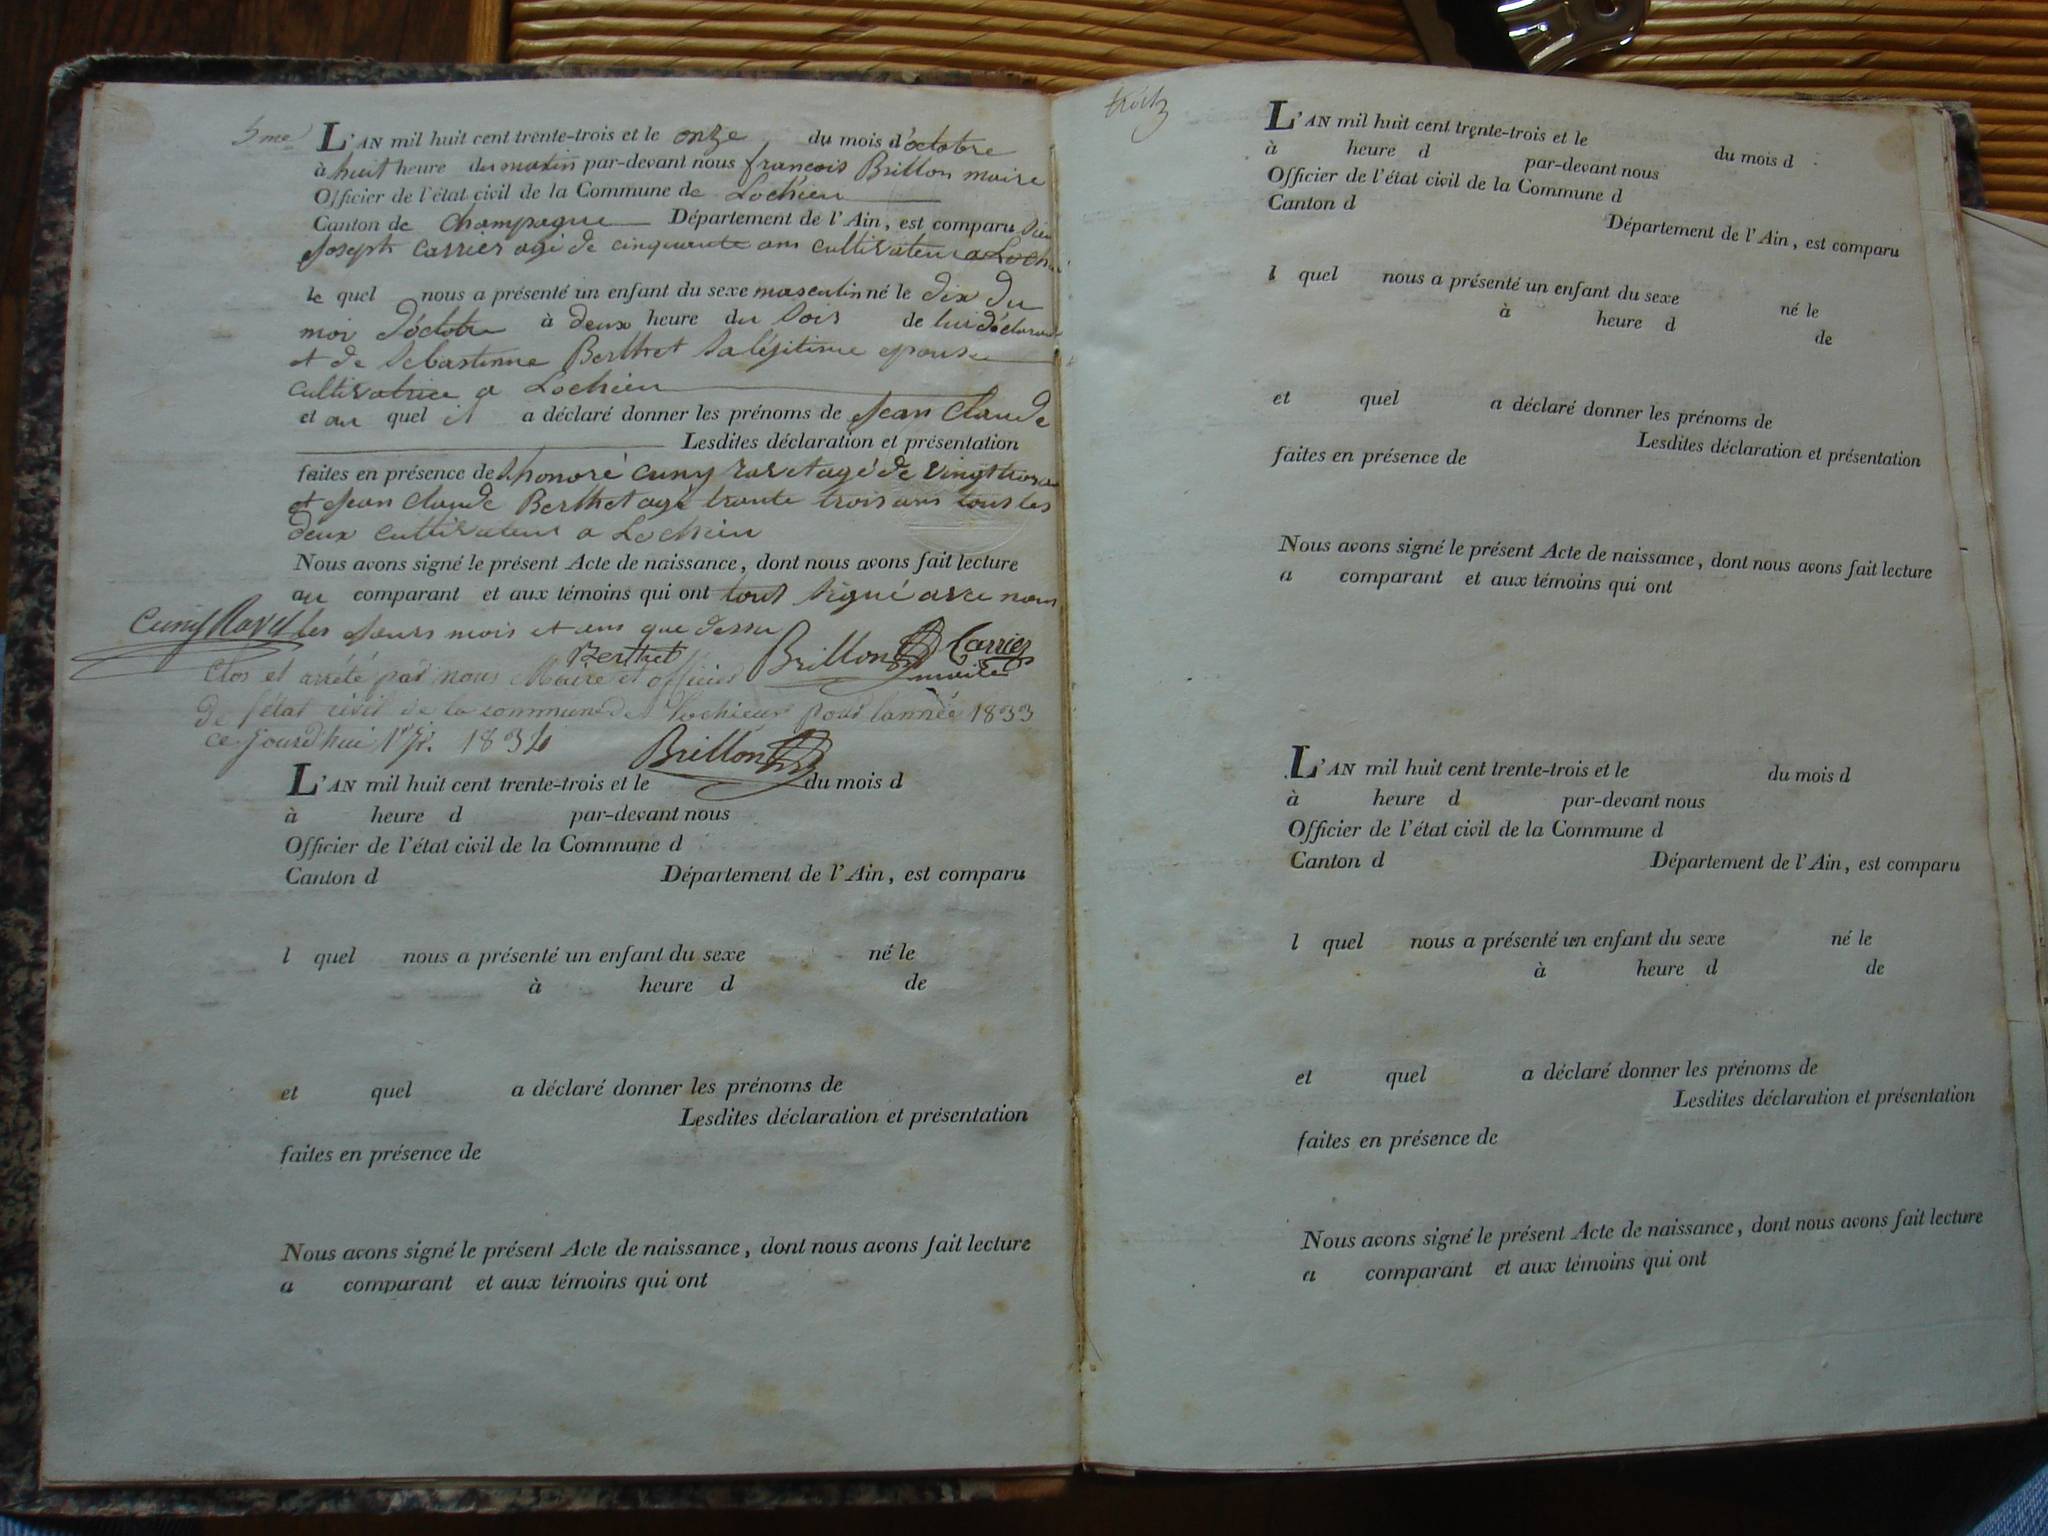 5me
L'AN mil huit cent trente-trois et le onze du mois d'octobre
à huit heure du matin par-devant nous françois Brillon maire
Officier de l'état civil de la Commune de Lochieu
Canton de Champagne Département de l'Ain, est comparu
Joseph Carrier agé de cinquante ans cultivateur a Lochieu
le quel nous a présenté un enfant du sexe masculin né le dix du
moi d'octobre à deux heure du soir de lui déclarant
et de Sebastinne Berthet sa légitime epouse
cultivatrice a Lochieu
et au quel il a déclaré donner les prénoms de jean Claude
Lesdites déclaration et présentation
faites en présence de honoré Cuny ravet agé de vingt trois
et jean Claude Berthet agé trante trois ans tous les
deux cultivateur a Lochieu
Nous avons signé le présent Acte de naissance, dont nous avons fait lecture
au comparant et aux témoins qui ont tout signé avec nous
les jours mois et ans que dessu
Cuny Ravet Berthet Brillon Carrier
maire
Clos et arrété par nous Maire et officier
de l'état civil de la commune de Lochieu pour l'année 1833
ce jourdhui 1834
Brillon
L'AN mil huit cent trente-trois et le du mois d
à heure d par-devant nous
Officier de l'état civil de la Commune d
Canton d Département de l'Ain, est comparu
l quel nous a présenté un enfant du sexe né le
à heure d de
et quel a déclaré donner les prénoms de
Lesdites déclaration et présentation
faites en présence de
Nous avons signé le présent Acte de naissance, dont nous avons fait lecture
a comparant et aux témoins qui ont
L'AN mil huit cent trente-trois et le du mois d
à heure d par-devant nous
Officier de l'état civil de la Commune d
Canton d Département de l'Ain, est comparu
l quel nous a présenté un enfant du sexe né le
à heure d de
et quel a déclaré donner les prénoms de
Lesdites déclaration et présentation
faites en présence de
Nous avons signé le présent Acte de naissance, dont nous avons fait lecture
a comparant et aux témoins qui ont
L'AN mil huit cent trente-trois et le du mois d
à heure d par-devant nous
Officier de l'état civil de la Commune d
Canton d Département de l'Ain, est comparu
l quel nous a présenté un enfant du sexe né le
à heure d de
et quel a déclaré donner les prénoms de
Lesdites déclaration et présentation
faites en présence de
Nous avons signé le présent Acte de naissance, dont nous avons fait lecture
a comparant et aux témoins qui ont